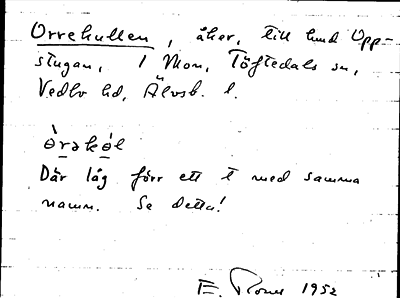 Orrekullen, åker, till hmd Upp-
stugan, 1 Mon, Töftedals sn,
Vedbo hd, Älvsb. l.
òrəkə̀l
Där låg förr ett t med samma
namn. Se detta!
E. 1952